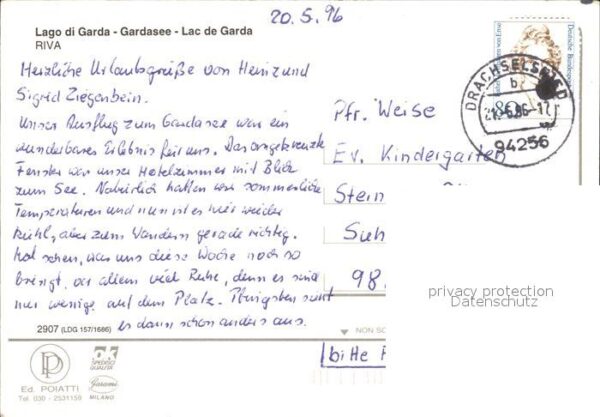 20.5.96
Lago di Garda - Gardasee - Lac de Garda
RIVA
Herzliche Urlaubsgrüße von Heinz und
Sigrid Ziegenbein.
Unser Ausflug zum Gardasee war ein
wunderbares Erlebnis für uns. Das angekreuzte
Fenster war unser Hotelzimmer mit Blick
zum See. Natürlich hatten wir sommerliche
Temperaturen und nun ist es hier wieder
kühl, aber zum Wandern gerade richtig.
Mal sehen, was uns diese Woche noch so
bringt, vor allem viel Ruhe, denn es sind
nur wenige auf dem Platz. Pfingsten sieht
es dann schon anders aus.
2907 (LDG 157/1686)
Ed. POIATTI
Tel. 030 - 2531159
Garami
MILANO
Deutsche Bundespost
DRACHSELSRIED
b
94256
Pfr. Weise
Ev. Kindergarten
Stein
Suh
98
privacy protection
Datenschutz
NON SC
bitte